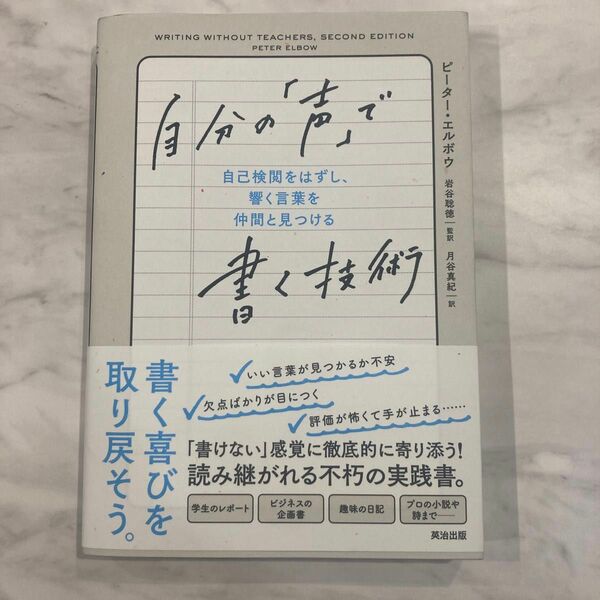 WRITING WITHOUT TEACHERS, SECOND EDITION
PETER ELBOW
自分の「声」で
書く技術
自己検閲をはずし、
響く言葉を
仲間と見つける
ピーター・エルボウ
岩谷聡徳 監訳
月谷真紀 訳
書く喜びを
取り戻そう。
いい言葉が見つかるか不安
欠点ばかりが目につく
評価が怖くて手が止まる……
「書けない」感覚に徹底的に寄り添う！
読み継がれる不朽の実践書。
学生のレポート
ビジネスの
企画書
趣味の日記
プロの小説や
詩まで――
英治出版